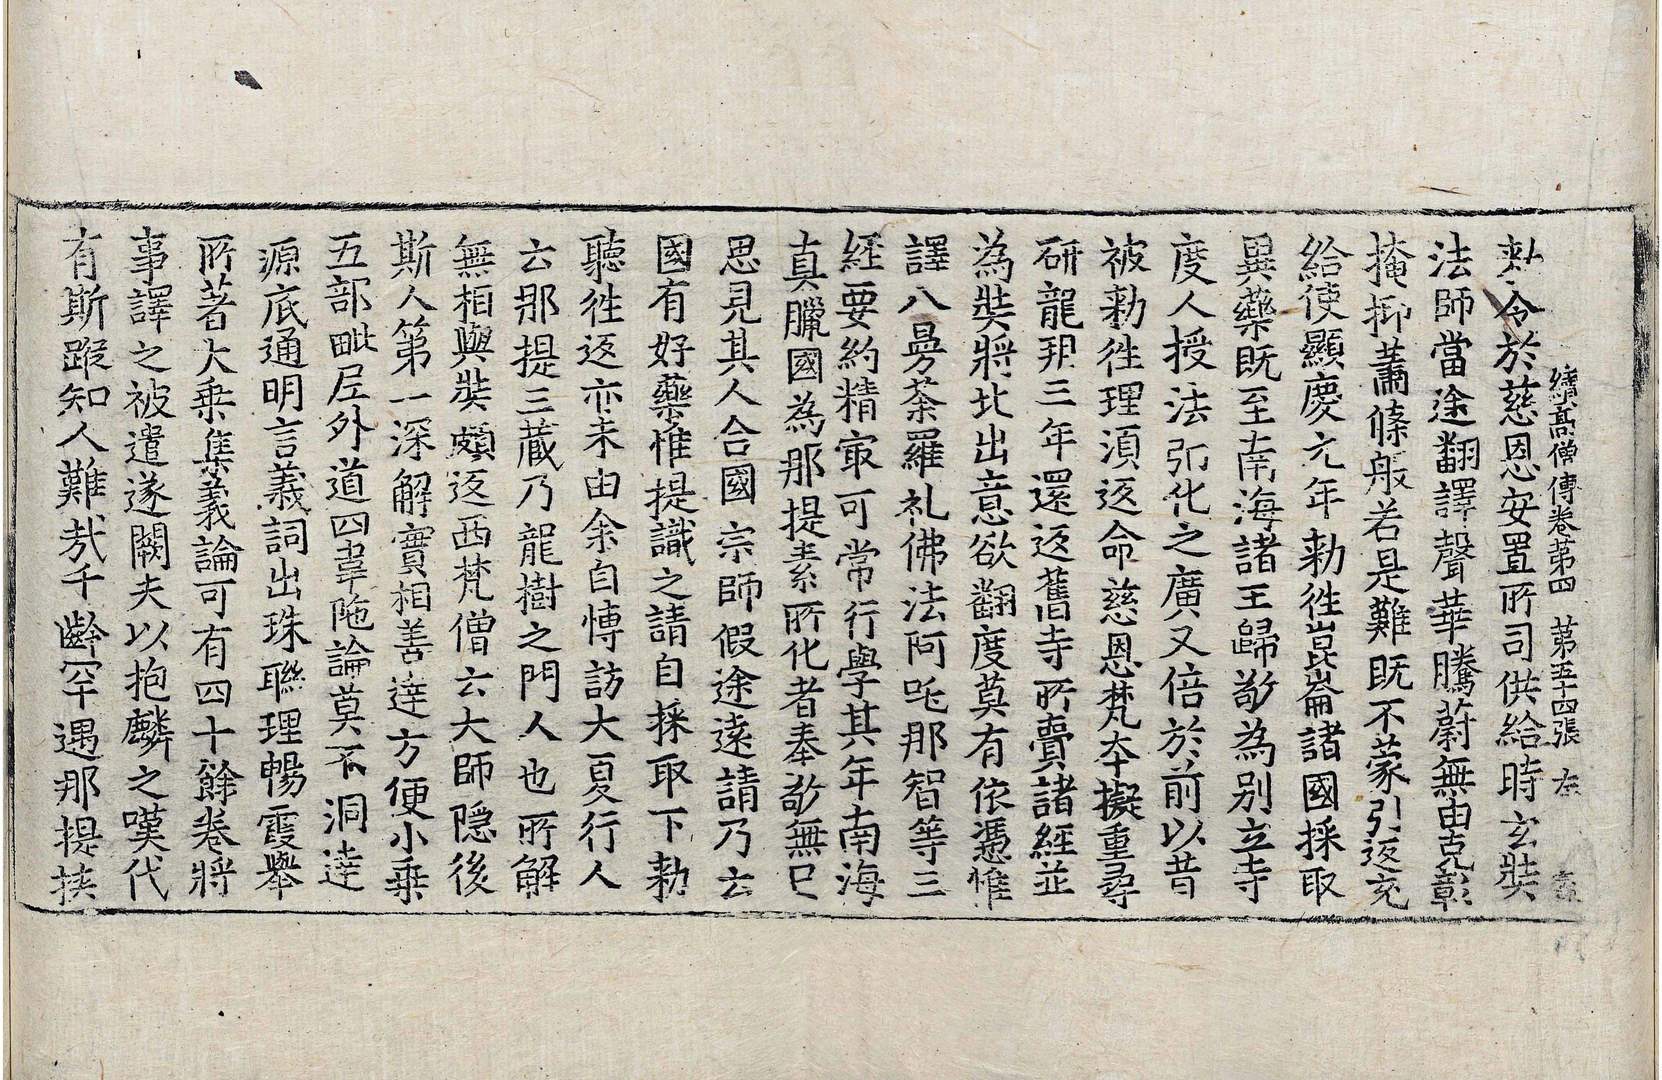 續高僧傳卷第四 第五十四張 左
勑令於慈恩安置所司供給時玄奘
法師當途翻譯聲華騰蔚無由克彰
掩抑蕭條般若是難既不蒙引返充
給使顯慶元年勑往崑崙諸國採取
異藥既至南海諸王歸敬為別立寺
度人授法弘化之廣又倍於前以昔
被勑往理須返命慈恩梵本擬重尋
研龍朔三年還返舊寺所賷諸經並
為奘將北出意欲翻度莫有依憑惟
譯八曼荼羅礼佛法阿吒那智等三
經要約精㝡可常行學其年南海
真臘國為那提素所化者奉敬無已
思見其人合國宗師假途遠請乃云
國有好藥惟提識之請自採取下勑
聽往返亦未由余自慱訪大夏行人
云那提三藏乃龍樹之門人也所解
無相與奘頗返西梵僧云大師隱後
斯人第一深解實相善達方便小乗
五部毗尼外道四韋陁論莫不洞達
源底通明言義詞出珠聯理暢霞舉
所著大乗集義論可有四十餘卷將
事譯之被遣遂闕夫以抱麟之嘆代
有斯蹤知人難㢤千齡罕遇那提挟